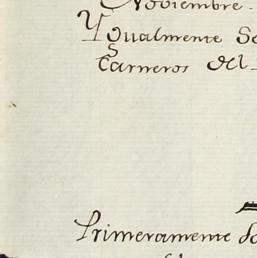 Noviembre.
Ygualmente Se
Carneros del
Primeramente